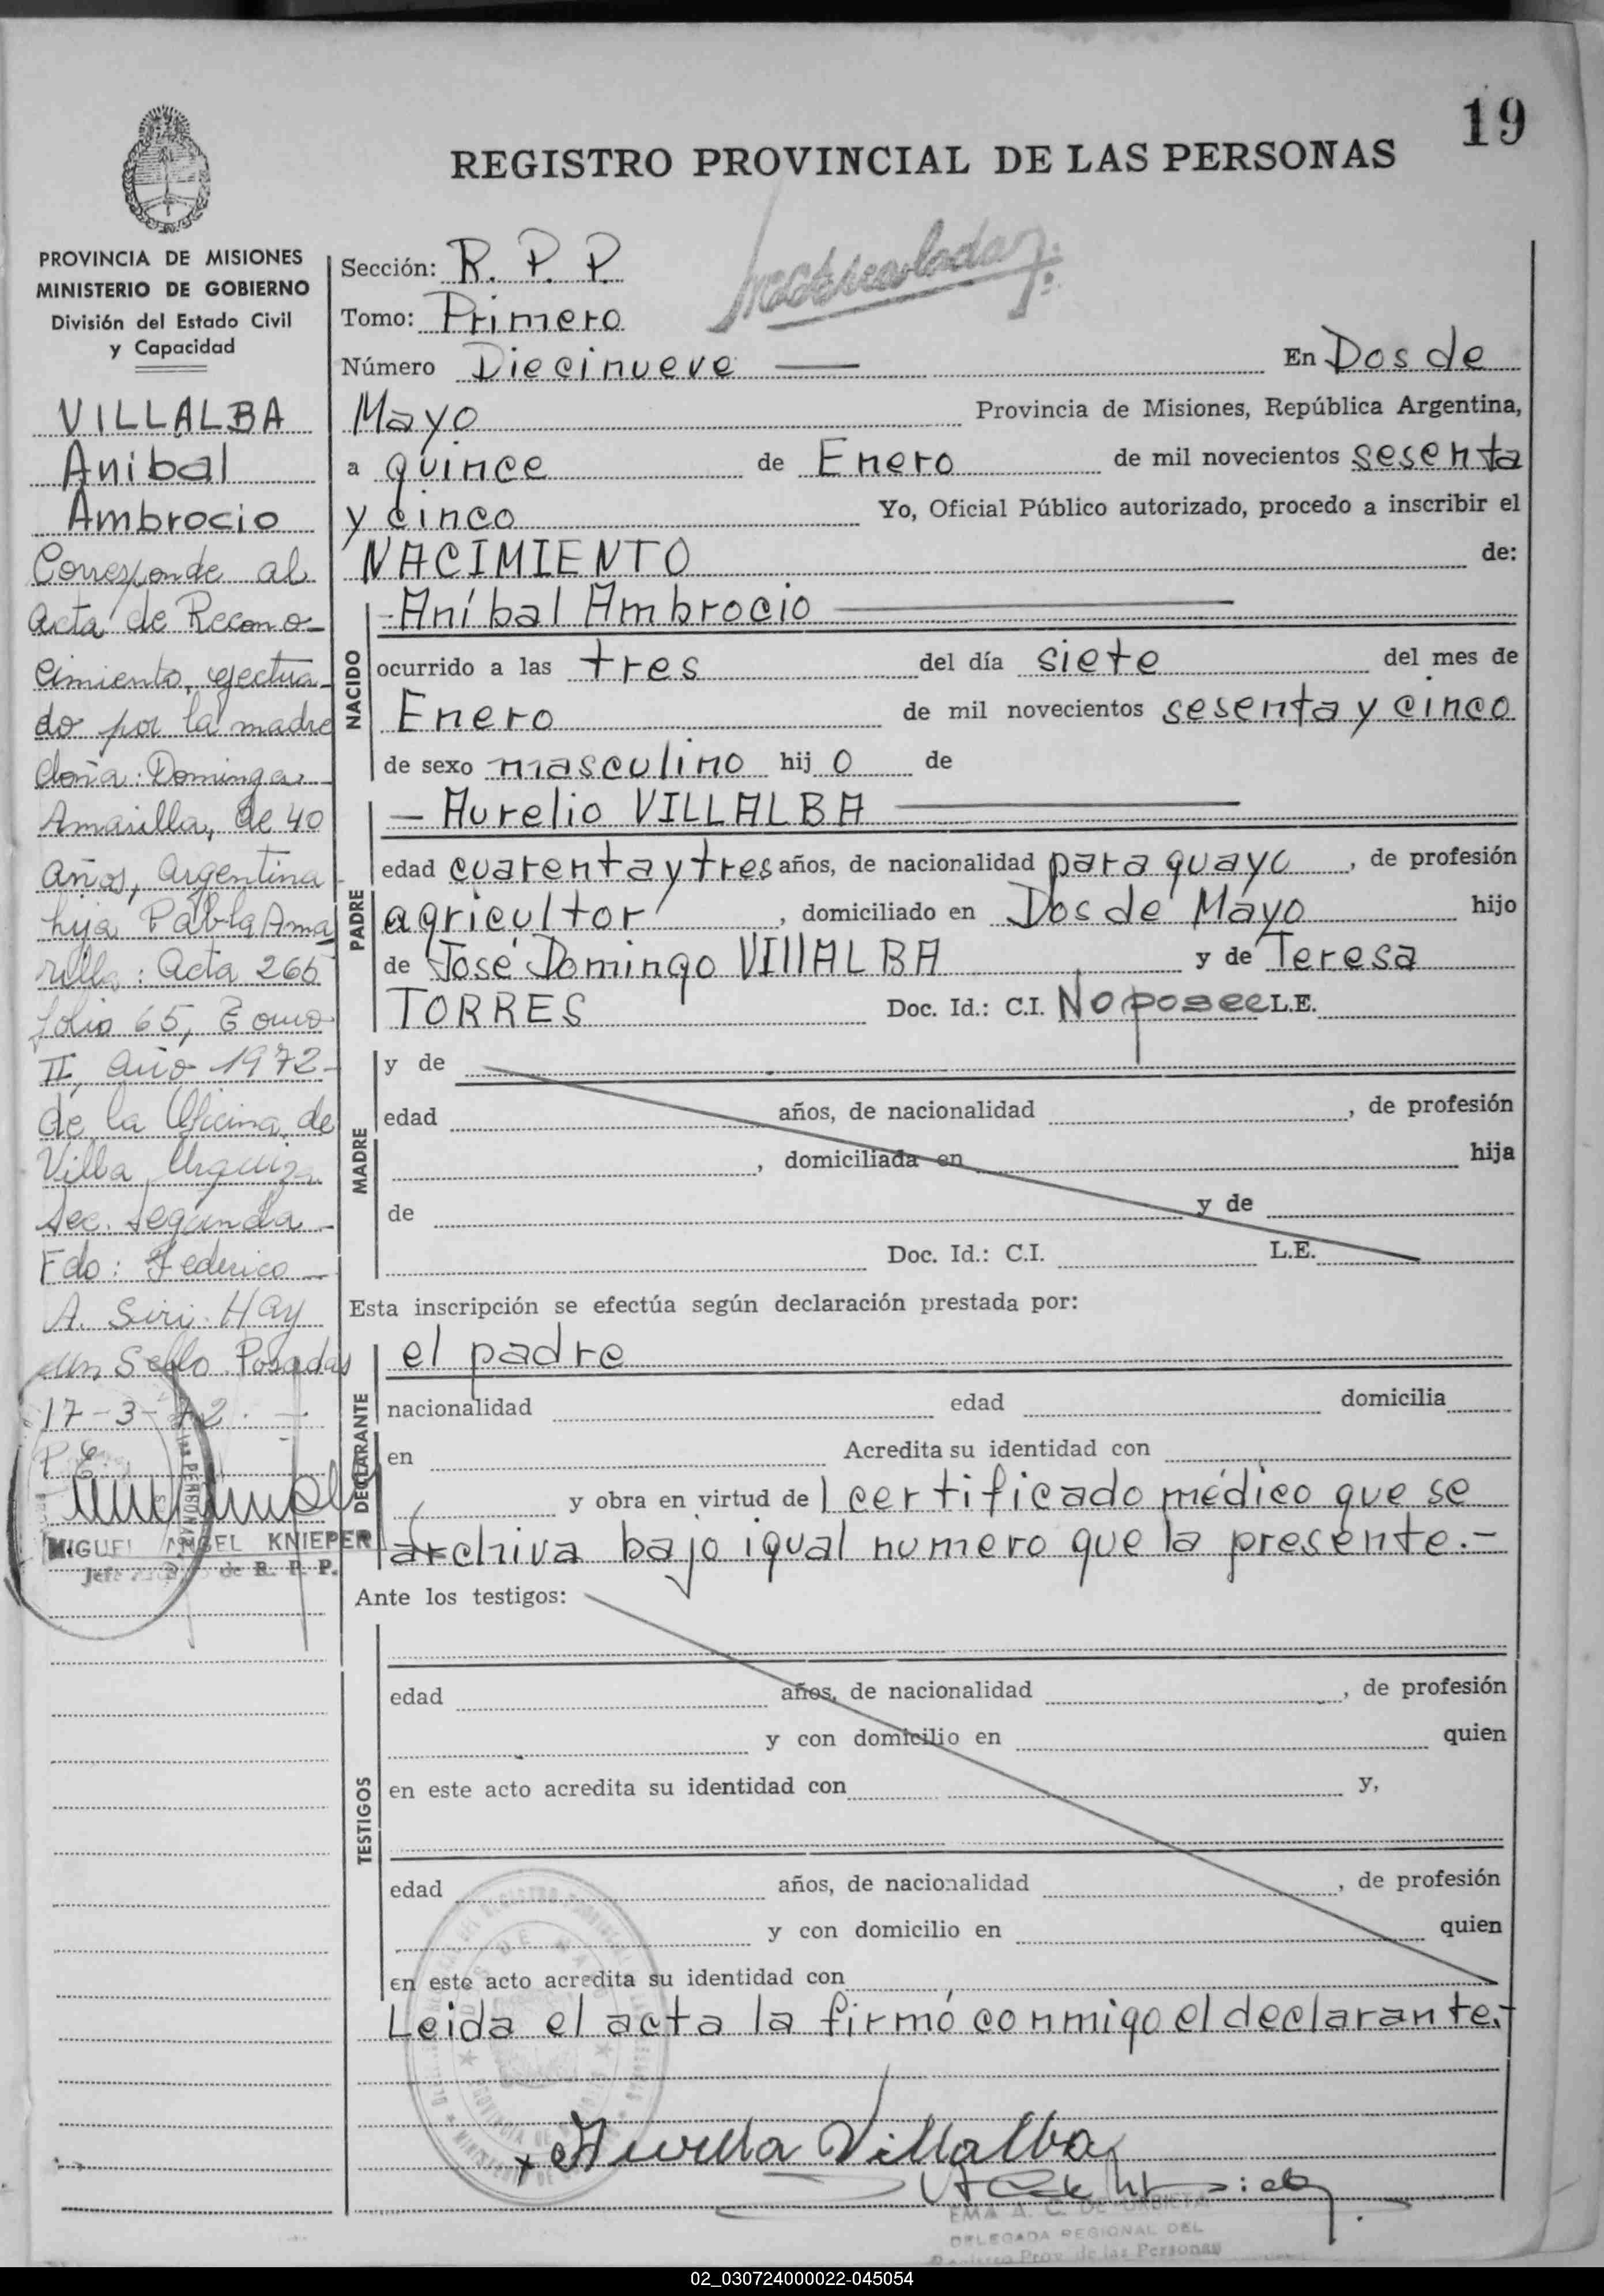 19
REGISTRO PROVINCIAL DE LAS PERSONAS
PROVINCIA DE MISIONES
MINISTERIO DE GOBIERNO
División del Estado Civil
y Capacidad
VILLALBA
Anibal
Ambrocio
Corresponde al
acta de Recono-
cimiento, efectua-
do por la madre
doña: Dominga
Amarilla, de 40
años, argentina
hija Pabla Ama
rilla: Acta 265
folio 65, Tomo
II, año 1972-
de la Oficina de
Villa Urquiza
Sec. Segunda
Fdo: Federico
A. Siri. Hay
un Sello. Posadas
17-3-72.
P.E.
MIGUEL ANGEL KNIEPER
de R. P. P.
Sección: R. P. P.
Tomo: Primero
Número Diecinueve En Dos de
Mayo Provincia de Misiones, República Argentina,
a quince de Enero de mil novecientos sesenta
y cinco Yo, Oficial Público autorizado, procedo a inscribir el
NACIMIENTO de:
NACIDO
-Aníbal Ambrocio
ocurrido a las tres del día siete del mes de
Enero de mil novecientos sesenta y cinco
de sexo masculino hij o de
PADRE
- Aurelio VILLALBA
edad cuarenta y tres años, de nacionalidad paraguayo, de profesión
agricultor, domiciliado en Dos de Mayo hijo
de José Domingo VIllALBA y de Teresa
TORRES Doc. Id.: C.I. No posee L.E.
MADRE
y de
edad años, de nacionalidad , de profesión
, domiciliada en hija
de y de
Doc. Id.: C.I. L.E.
Esta inscripción se efectúa según declaración prestada por:
DECLARANTE
el padre
nacionalidad edad domicilia
en Acredita su identidad con
y obra en virtud de l certificado médico que se
archiva bajo igual numero que la presente.-
Ante los testigos:
TESTIGOS
edad años, de nacionalidad , de profesión
y con domicilio en quien
en este acto acredita su identidad con y,
edad años, de nacionalidad , de profesión
y con domicilio en quien
en este acto acredita su identidad con
Leida el acta la firmó conmigo el declarante.-
Villalba
EMA A. C. DE URBIETA
DELEGADA REGIONAL DEL
Registro Prov. de las Personas
02_030724000022-045054